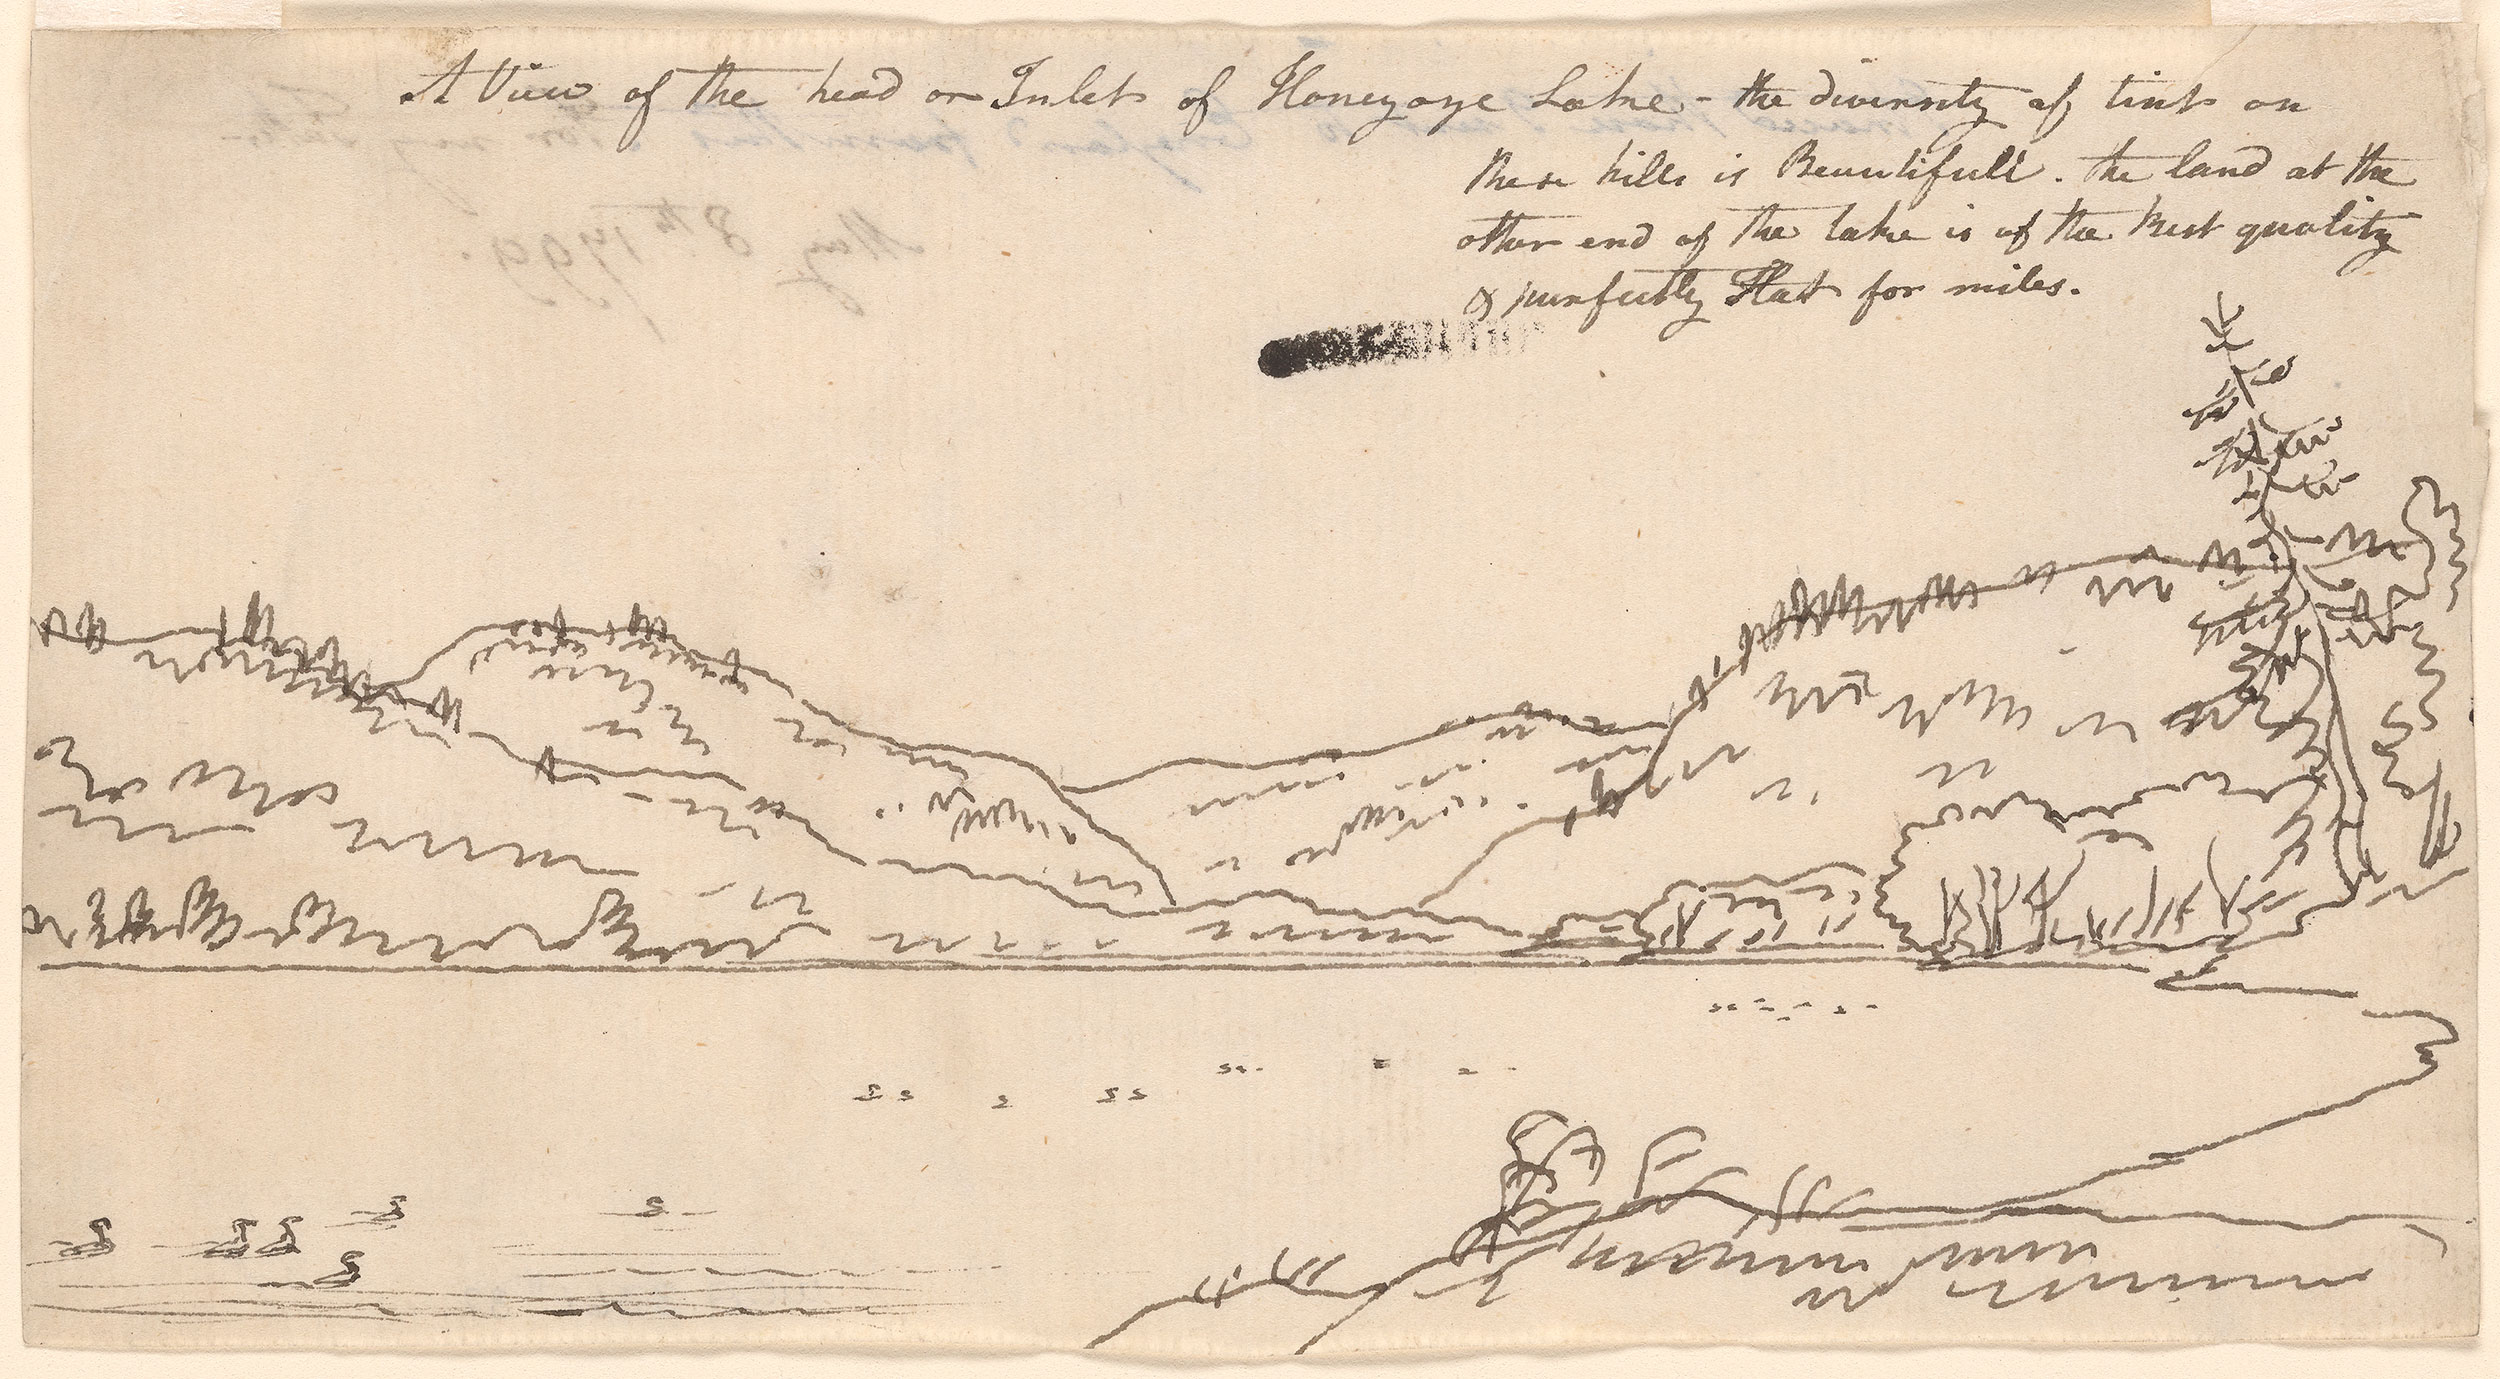 A View of the head or Inlet of Honeyoye Lake - the diversity of tint on
these hills is Beautifull. the land at the
other end of the lake is of the best quality
& purfectly Flatt for miles.
May 8th 1799.